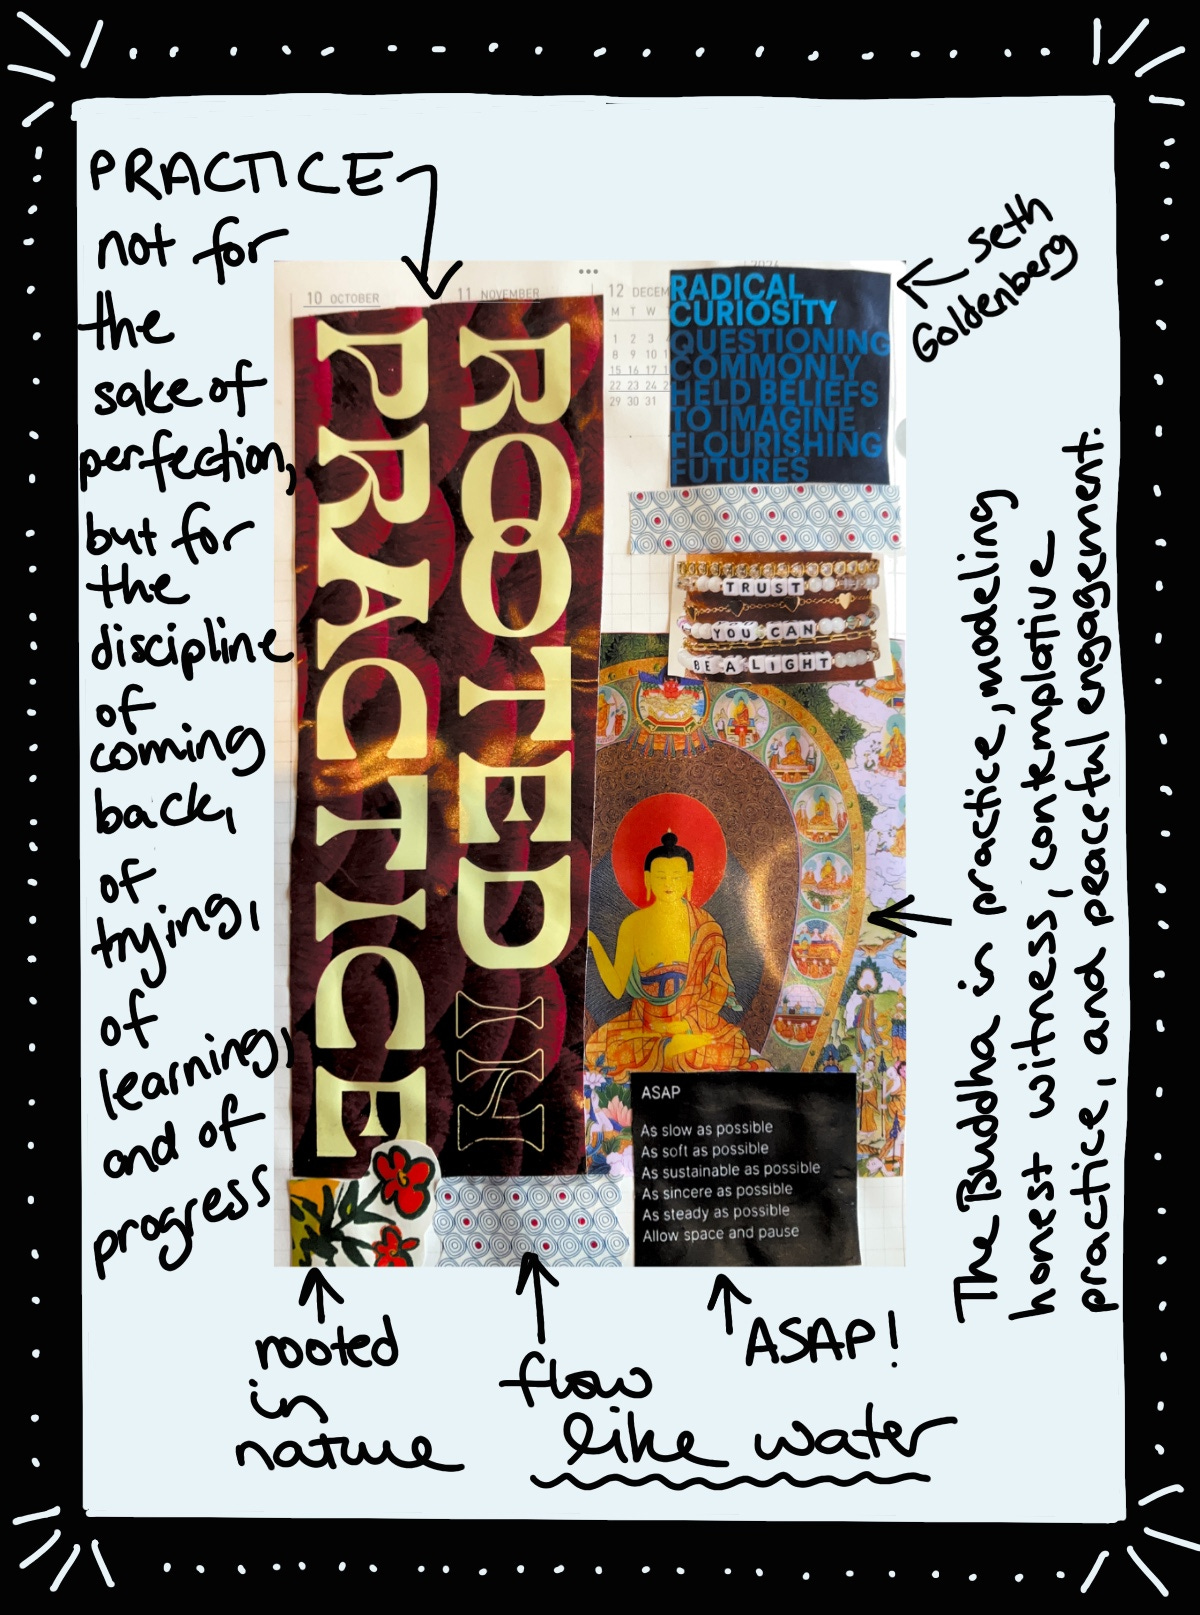 PRACTICE
not for
the
sake of
perfection,
but for
the
discipline
of
coming
back,
of
trying,
of
learning,
and of
progress
10 OCTOBER
11 NOVEMBER
12 DECEM
M T W
1 2 3
8 9 10
15 16 17
22 23 24
29 30 31
ROOTED IN
PRACTICE
RADICAL
CURIOSITY
QUESTIONING
COMMONLY
HELD BELIEFS
TO IMAGINE
FLOURISHING
FUTURES
Seth
Goldenberg
TRUST
YOU CAN
BE A LIGHT
The Buddha in practice, modeling
honest witness, contemplative
practice, and peaceful engagement.
ASAP
As slow as possible
As soft as possible
As sustainable as possible
As sincere as possible
As steady as possible
Allow space and pause
rooted
in
nature
flow
like water
ASAP!